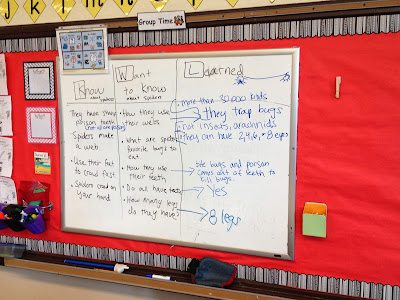 Group Time
Know
about spiders
They have strong
poison teeth
(not all are poison)
Spiders make
a web
Use their feet
to crawl fast
Spiders crawl on
your hand
Want
to know
about spiders
• How they use
their webs
• What are spiders
favorite bugs to
eat
• How they use
their teeth
• Do all have teeth
• How many legs
do they have?
Learned
• more than 30,000 kinds
They trap bugs
• not insects, arachnids
• They can have 2,4,6, • 8 eyes
bite bugs and poison
comes out of teeth to
kill bugs.
Yes
8 legs